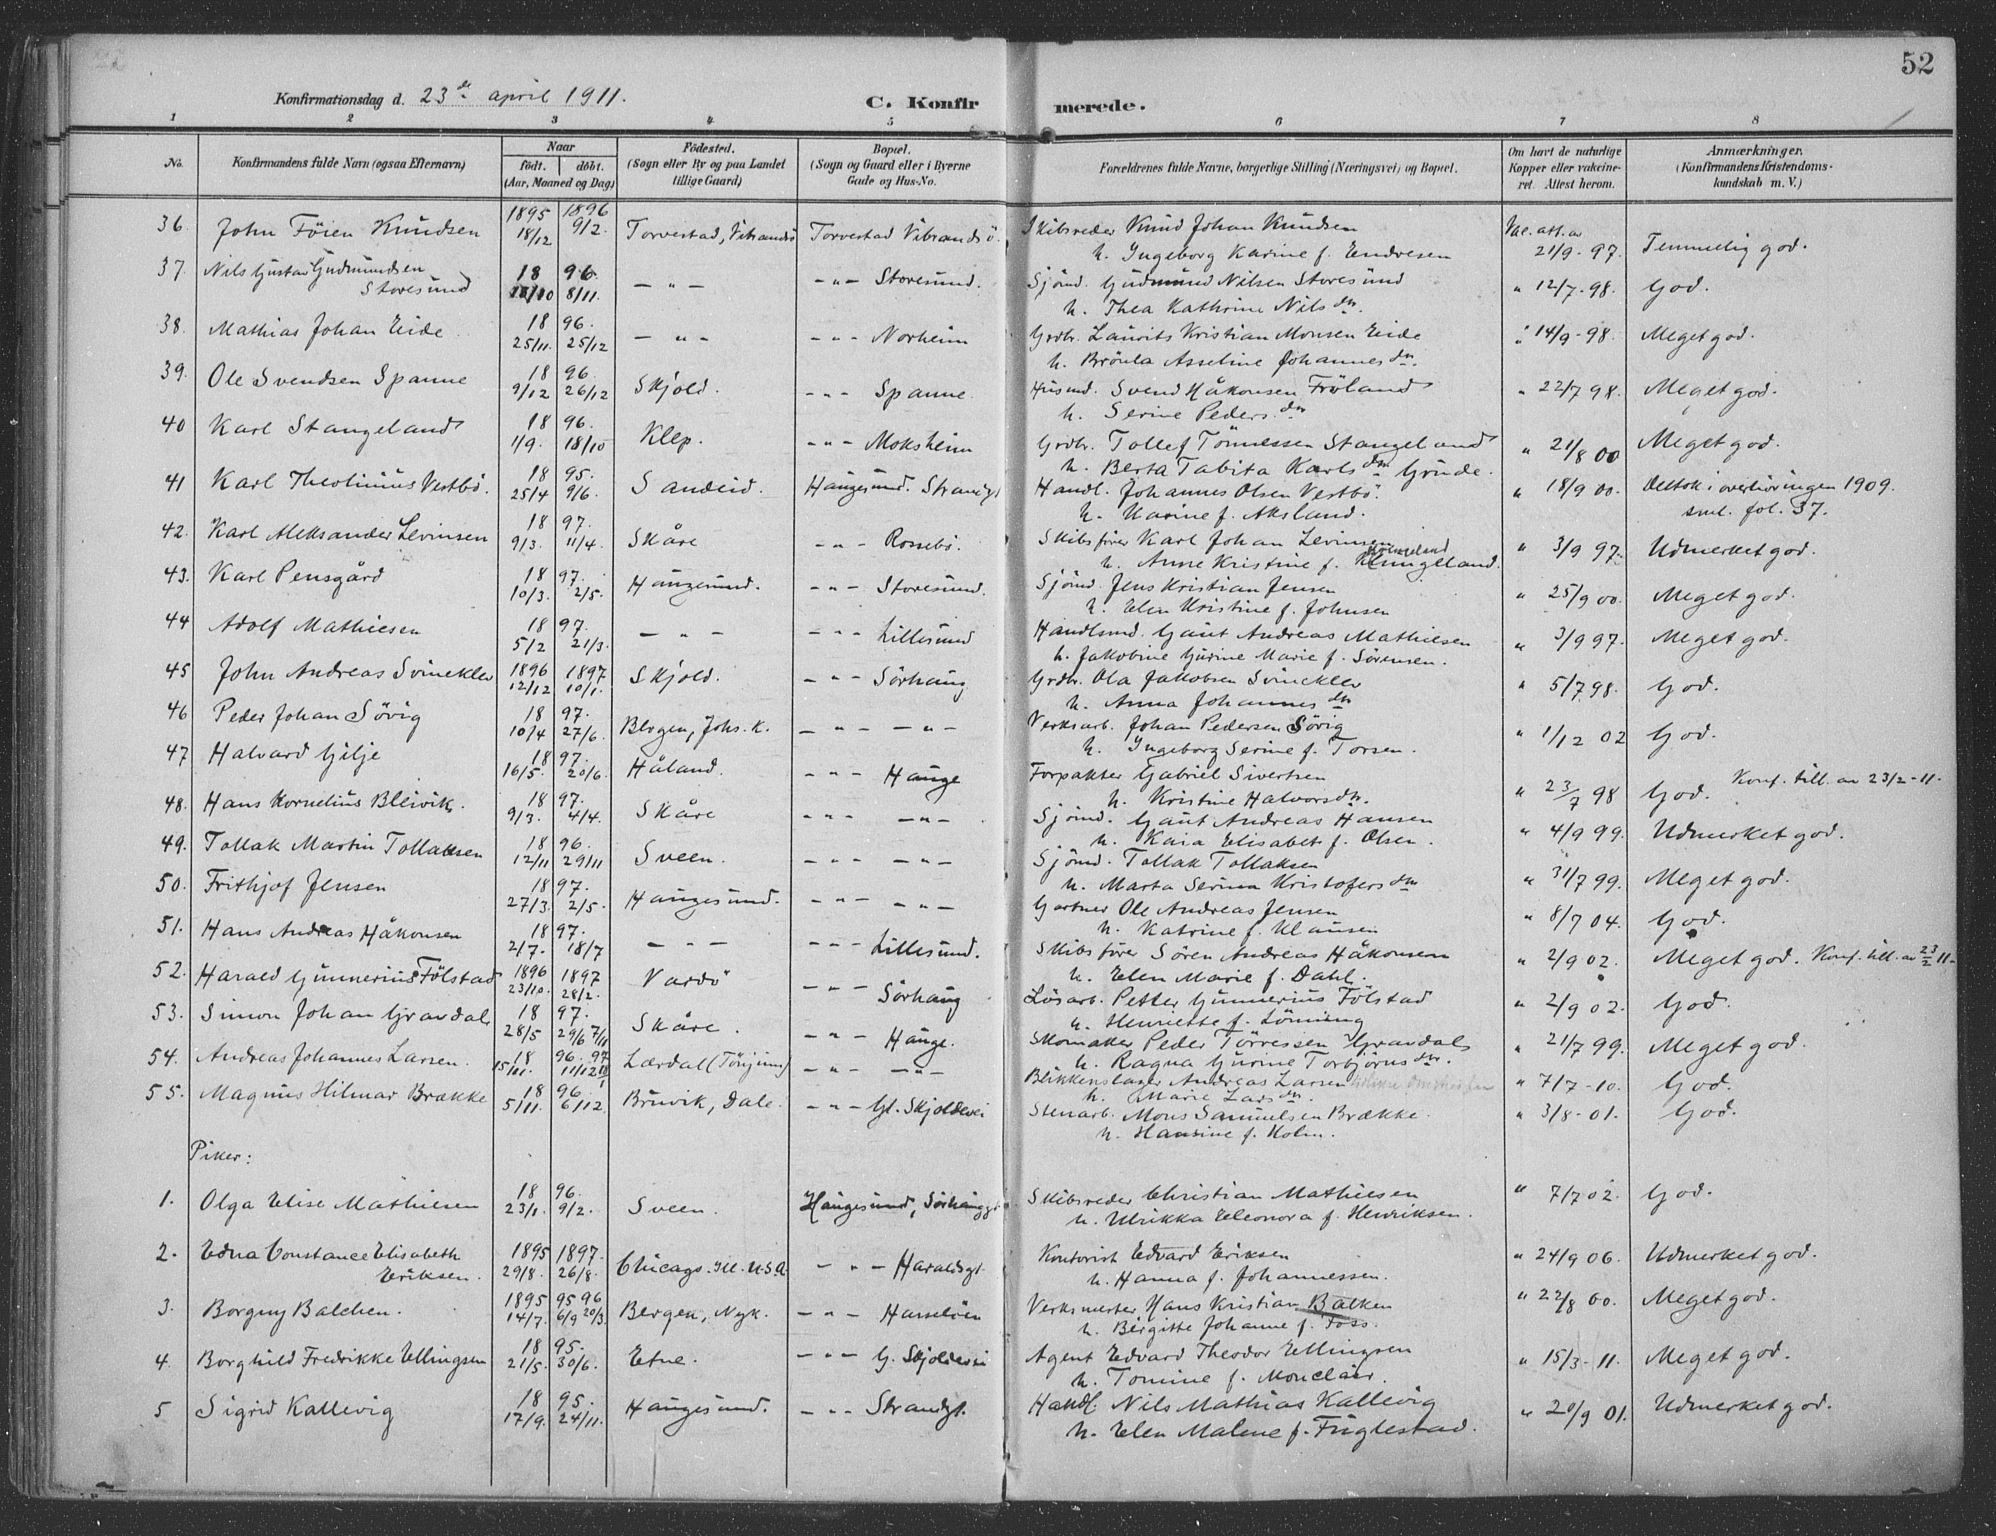 52
Konfirmationsdag d. 23de april 1911.
C. Konfirmerede.
1 2 3 4 5 6 7 8
No. Konfirmandens fulde Navn (ogsaa Efternavn) Naar født. døbt. (Aar, Maaned og Dag) Fødested. (Sogn eller By og paa Landet tillige Gaard) Bopæl. (Sogn og Gaard eller i Byerne Gade og Hus-No. Forældrenes fulde Navne, borgerlige Stilling (Næringsvei) og Bopæl. Om havt de naturlige Kopper eller vakcineret. Attest herom. Anmærkninger. (Konfirmandens Kristendomskundskab m. V.)
36. John Föien Knudsen 1895 18/12 1896 9/2. Torvestad, Vibrandsö Torvestad Vibrandsö. Skibsreder Knud Johan Knudsen Vac. att. av 21/9-97. Temmelig god.
h. Ingeborg Karine f. Endresen
37. Nils Gustav Gudmundsen Storesund 1896. 8/11. — " — - " - Storesund. Sjömd. Gudmund Nilsen Storesund " 12/7-98. God.
h. Thea Kathrine Nilsdn.
38. Mathias Johan Eide 1896. 25/11. 25/12 — " - - " - Norheim Grdbr. Laurits Kristian Monsen Eide " 14/9-98. Meget god.
h. Asseline Johannesdn.
39. Ole Svendsen Spanne 1896. 9/12 26/12 Skjold. - " - Spanne. Husmd. Svend Håkonsen Fröland " 22/7 98. Meget god.
h. Serine Pedersdn
40 Karl Stangeland 1896. 1/9. 18/10 Klep. - " - Moksheim Grdbr. Tollef Tönnessen Stangeland " 21/8 00 Meget god.
h. Berta Tabita Karlsdn Grinde.
41 Karl Theolinius Vestbö. 1895. 25/4 9/6. Sandeid. Haugesund. Strandgt Handl. Johannes Olsen Vestbö. " 18/9 00. Deltok i overhöringen 1909. sml. fol. 37.
h. Karine f. Aksland.
42. Karl Aleksander Levinsen 1897. 9/3. 11/4. Skåre - " - Rossebö. Skibsförer Karl Johan Levinsen " 3/9 97. Udmerket god.
h. Anne Kristine f.
43. Karl Pensgård 1897. 10/3. 2/5. Haugesund. - " - Storesund. Sjömd. Jens Kristian Jensen " 25/9 00. Meget god.
h. Elen Kristine f. Johnsen
44 Adolf Mathiesen 1897. 5/2 21/3. — " - - " - Lillesund Handlsmd. Gaut Andreas Mathiesen " 3/9 97. Meget god.
h. Jakobine Gurine Marie f. Sörensen.
45 John Andreas Svinekler 1896 12/12 1897 10/1. Skjold. - " - Sörhaug Grdbr. Ola Jakobsen Svinekler " 5/7 98. God.
h. Anna Johannesdn
46 Peder Johan Sövig 1897. 10/4 27/6. Bergen, Johs. K. - " - - " - Verksarb. Johan Pedersen Sövig " 1/12 02 God.
h. Ingeborg Serine f. Torsen.
47 Halvard Gilje 1897. 16/5. 20/6. Håland. - " - Hauge Forpakter Gabriel Sivertsen " 23/7 98 God. Konf. till. av 23/2-11.
h. Kristine Halvorsdtr.
48. Hans Kornelius Bleivik. 1897. 9/3. 4/4. Skåre - " - - " - Sjömd. Gaut Andreas Hansen " 4/9 99. Udmerket god.
h. Kaia Elisabet f. Olsen.
49. Tollak Martin Tollaksen 1896. 12/11 29/11 Sveen. - " - - " - Sjömd. Tollak Tollaksen " 31/7 99. Meget god.
h. Marta Serina Kristofersdn
50. Frithjof Jensen 1897. 27/3. 2/5. Haugesund. - " - - " - Gartner Ole Andreas Jensen " 8/7 04. God.
h. Katrine f. Klausen
51. Hans Andreas Håkonsen 1897. 2/7. 18/7 — " - - " - Lillesund. Skibsförer Sören Andreas Håkonsen " 2/9 02. Meget god. Konf. till. av 23/2 11.
h. Elen Marie f. Dahl.
52. Harald Gunnerius Fölstad 1896 23/10. 1897 28/2. Vardö - " - Sörhaug Lösarb. Petter Gunnerius Fölstad " 2/9 02. God.
h. Henriette f. Lönning
53. Simon Johan Gravdal 1897. 28/5 29/6 7/11 Skåre. - " - Hauge. Skomaker Peder Torressen Gravdal " 21/7 99. Meget god.
h. Ragna Gurine Torbjörnsdtr.
54. Andreas Johannes Larsen. 18 15/11. 96. 97 11/12 Lærdal (Tönjum) - " - - " - Blikkenslager Andreas Larsen " 7/7-10. God.
h. Marie Larsdn
55. Magnus Hilmar Brække 1896. 5/11. 6/12. Bruvik, Dale. - " - Gl. Skjoldevei Stenarb. Mons Samuelsen Brække. " 3/8-01. God.
h. Hansine f. Holm.
Piker:
1. Olga Elise Mathiesen 1896. 23/1. 9/2. Sveen. Haugesund, Sörhauggt. Skibsreder Christian Mathiesen " 7/7 02. God.
h. Ulrikka Eleonora f. Henriksen.
2. Edna Constance Elisabeth Eriksen. 1895 29/8. 1897. 26/8. Chicago. Ill. U.S.A. - " - Haraldsgt. Kontorist Edvard Eriksen " 24/9 06. Udmerket god.
h. Hanna f. Johannessen.
3. Borgny Balchen. 1895 14/7. 95 96 6/9 20/3. Bergen, Nyk. - " - Hasselöen Verksmester Hans Kristian Balken " 22/8 00. Meget god.
h. Birgitte Johanne f. Foss.
4. Borghild Fredrikke Ellingsen 1895. 21/5. 30/6. Etne. - " - G. Skjoldevei Agent Edvard Theodor Ellingsen " 15/3-11. Meget god.
h. Tomine f. Monclair.
5 Sigrid Kallevig 1895. 17/9. 24/11. Haugesund. - " - Strandgt. Handl. Nils Mathias Kallevig " 20/9 01. Udmerket god.
h. Elen Malene f. Fuglestad.